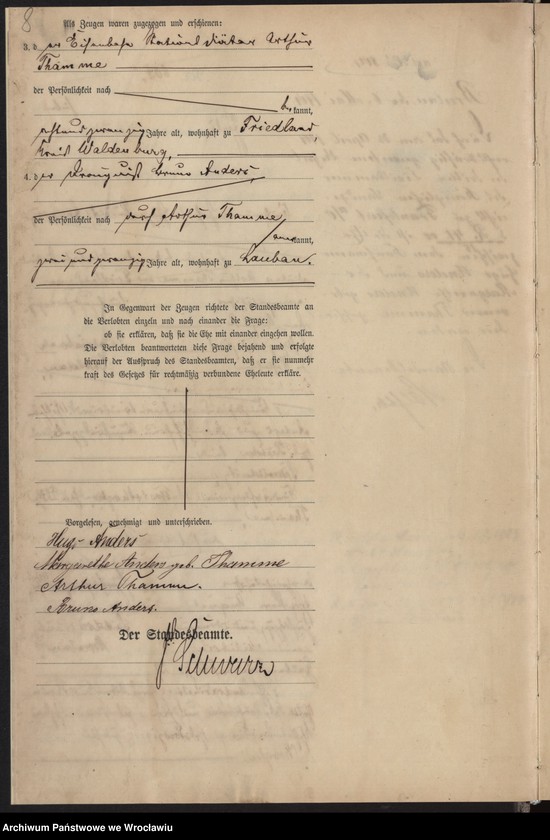 8
Als Zeugen waren zugezogen und erschienen:
3. der Eisenbahn Stationsdiätar Arthur
Thamme
der Persönlichkeit nach
be kannt,
acht und zwanzig Jahre alt, wohnhaft zu Friedland,
Kreis Waldenburg,
4. der Drogist Bruno Anders,
der Persönlichkeit nach durch Arthur Thamme
anerkannt,
zwei und zwanzig Jahre alt, wohnhaft zu Lauban.
In Gegenwart der Zeugen richtete der Standesbeamte an
die Verlobten einzeln und nach einander die Frage:
ob sie erklären, daß sie die Ehe mit einander eingehen wollen.
Die Verlobten beantworteten diese Frage bejahend und erfolgte
hierauf der Ausspruch des Standesbeamten, daß er sie nunmehr
kraft des Gesetzes für rechtmäßig verbundene Eheleute erkläre.
Vorgelesen, genehmigt und unterschrieben.
Hugo Anders
Margarethe Anders geb. Thamme
Arthur Thamme.
Bruno Anders.
Der Standesbeamte.
Archiwum Państwowe we Wrocławiu